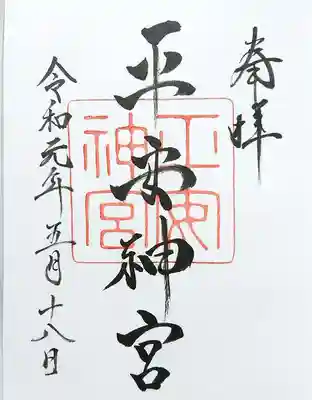 奉拝
平安神宮
平安神宮
令和元年 五月 十八日